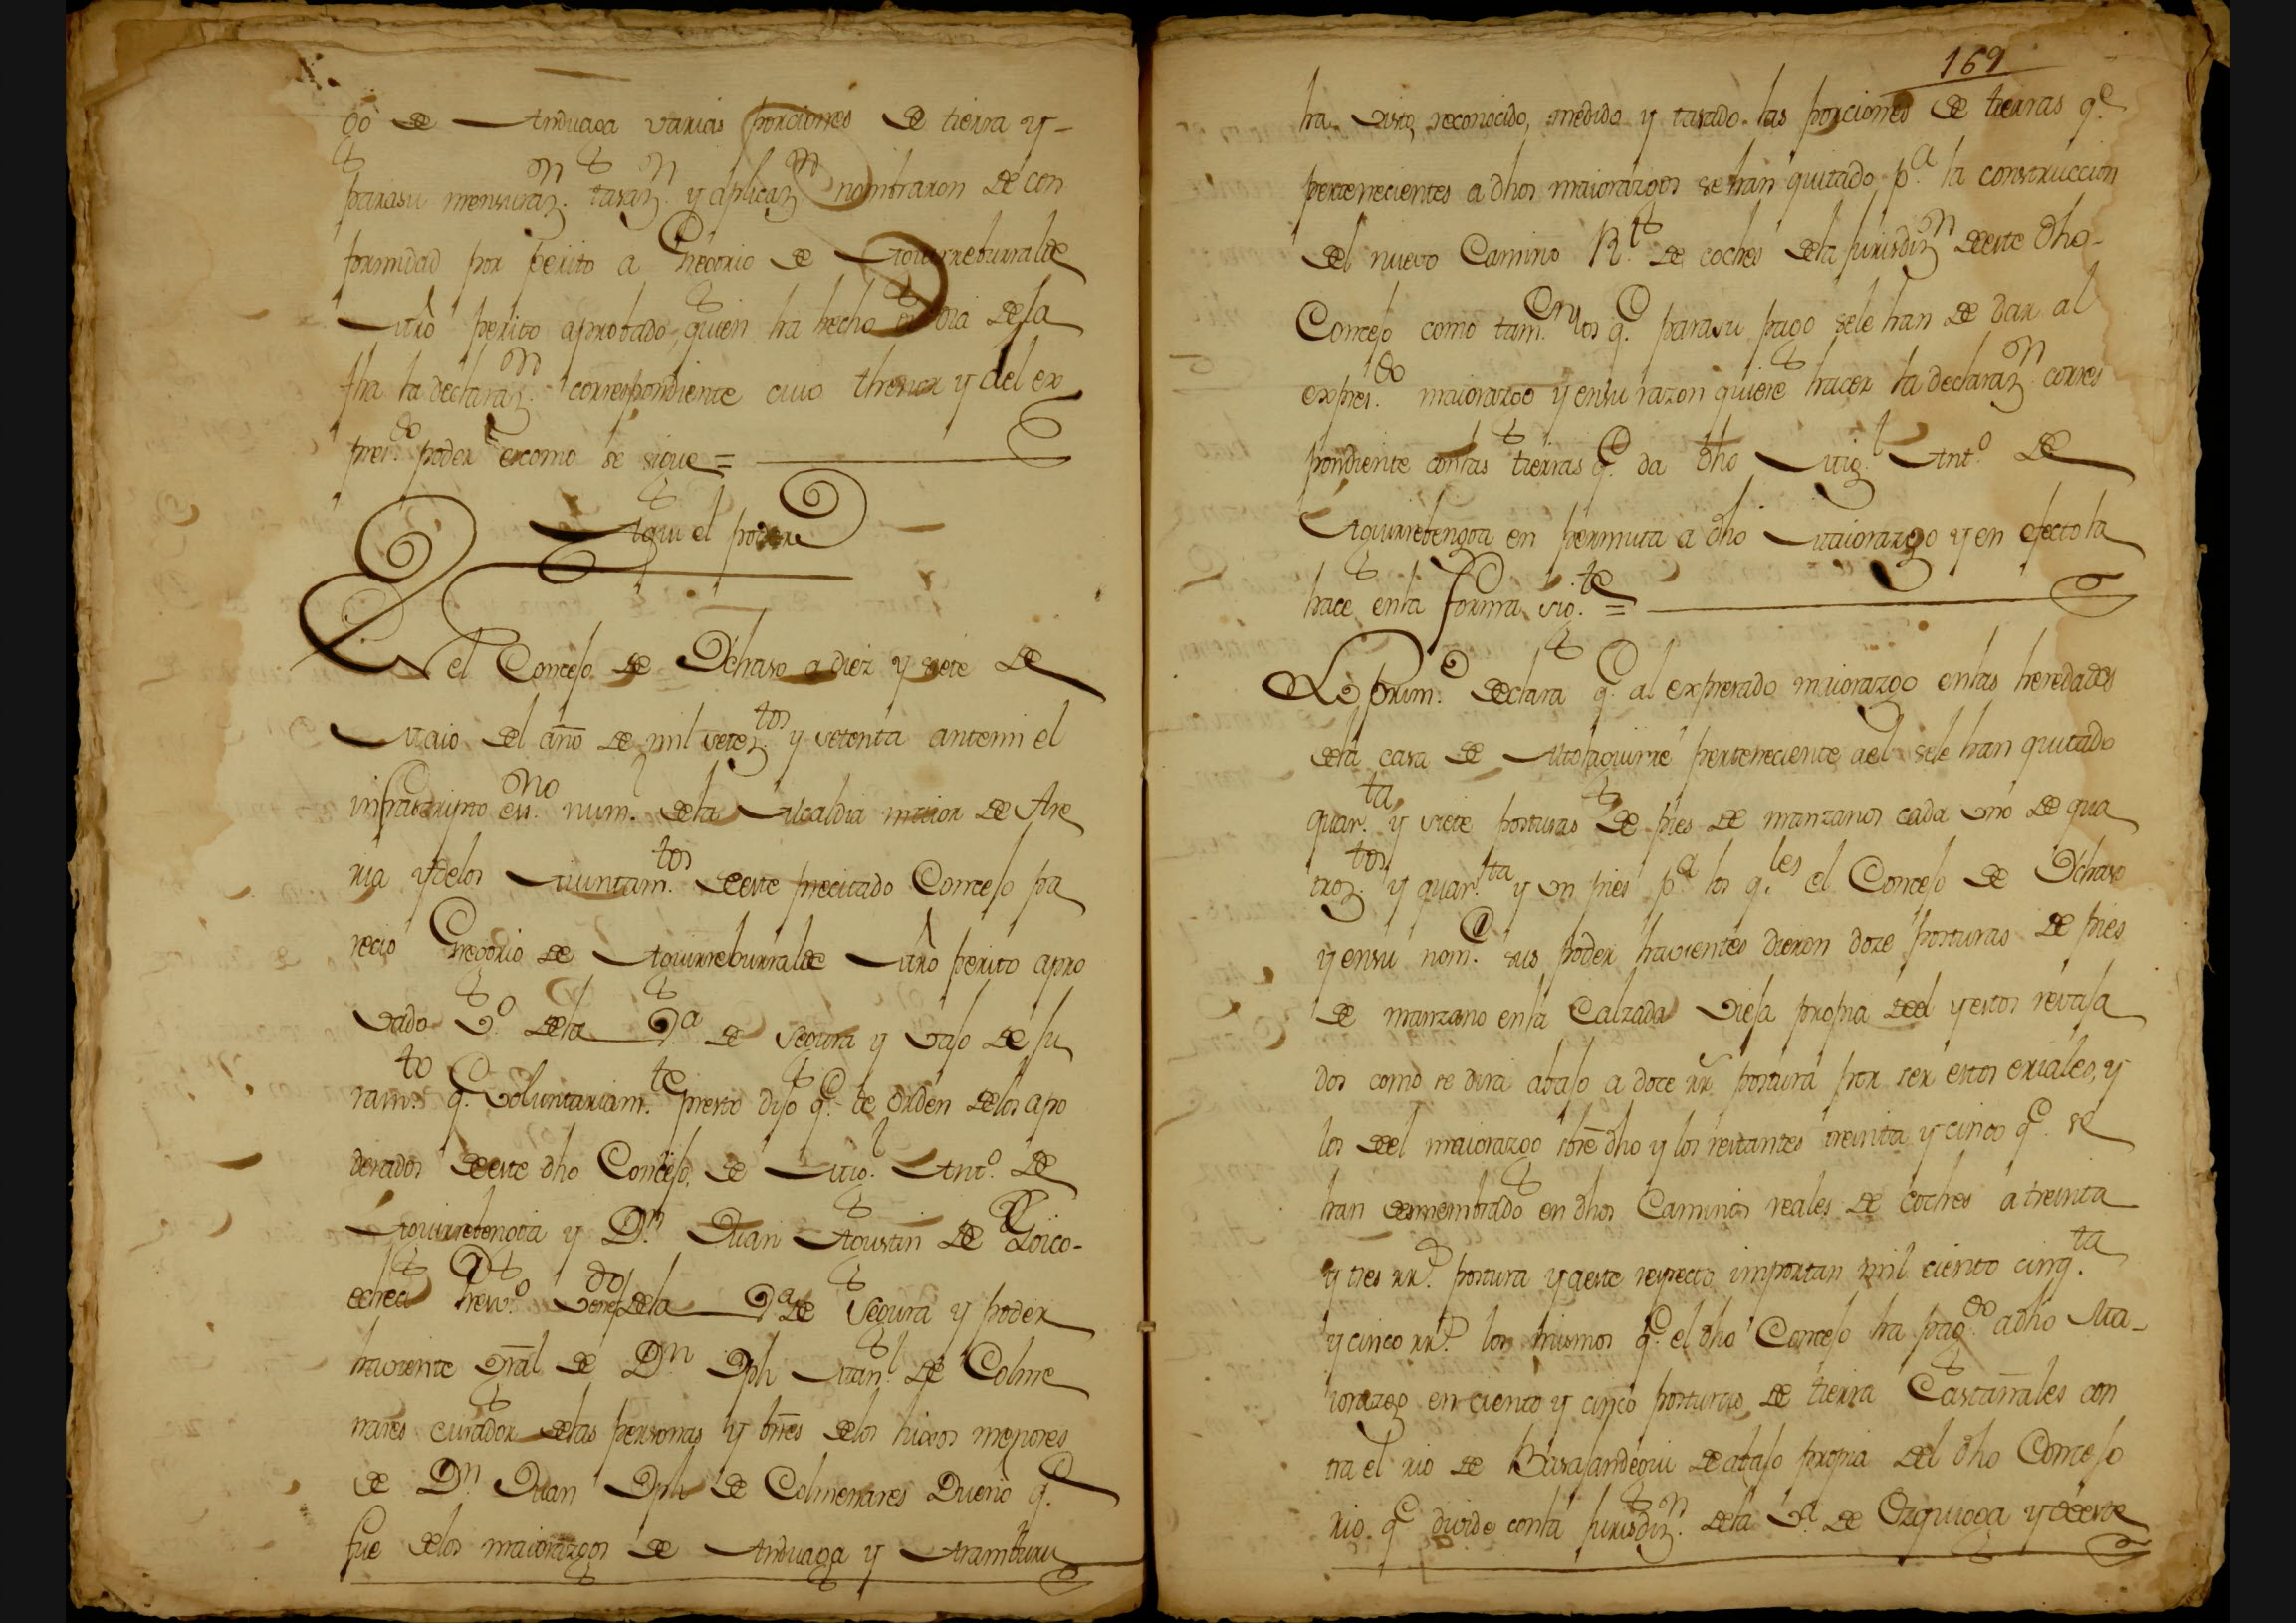 do de Anduaga varias porciones de tierra y
parasu mensuraz.n tasaz.n y aplicaz.n nombraron de con
formidad por perito a Gregorio de Aguirreburralde
Mro perito aprobado, quien ha hecho en dia dela
fha la declaraz.n correspondiente cuio thenor y del ex
pres.do poder es como se sigue =
Aqui el poder
En el Concejo de Ochavo a diez y siete de
Maio del año de mil setez.tos y setenta antemi el
infrascripto ess.no num.l dela Alcaldia maior de Are
ria y delos Aiuntam.tos deeste precitado Concejo pa
recio Gregorio de Aguirreburralde Mro perito apro
vado V.o dela V.a de Segura y vajo de ju
ram.to q.e voluntariam.te presto dijo q.e de orden delos apo
derados deeste dho Concejo, de Mig.l Ant.o de
Aguirrebengoa y D.n Juan Agustin de Goico-
echea Presv.o Benef.do dela V.a de Segura y poder
haviente Gral de D.n Jph Man.l de Colme
nares curador delas personas y bnes delos hixos menores
de D.n Juan Jph de Colmenares Dueño q.e
fue delos maiorazgos de Anduaga y Aramburu
169
ha visto, reconocido, medido y tasado las porciones de tierras q.e
pertenecientes a dhos maiorazgos se han quitado p.a la construccion
del nuevo Camino R.l de coches dela jurisdiz.n deeste dho
Concejo como tam.en los q.e parasu pago sele han de dar al
expres.do maiorazgo y ensu razon quiere hacer la declaraz.n corres
pondiente conlas tierras q.e da dho Mig.l Ant.o de
Aguirrebengoa en permuta a dho Maiorazgo y en efecto la
hace enla forma sig.te =
Lo prim.o declara q.e al expresado maiorazgo enlas heredades
dela casa de Altolaguirre perteneciente ael sele han quitado
quar.ta y siete posturas de pies de manzanos cada uno de qua
troz.tos y quar.ta y un pies p.a los q.les el Concejo de Ochavo
y ensu nom.e sus poder havientes dieron doce posturas de pies
de manzano enla Calzada vieja propia deel y estos revaja
dos como se dira abajo a doce rr.s postura por ser estos eriales, y
los deel maiorazgo sbre dho y los restantes treinta y cinco q.e se
han desmembrado en dhos Caminos reales de coches a treinta
y tres rr.s postura y aeste respecto importan mil ciento cinq.ta
y cinco rr.s los mismos q.e el dho Concejo ha pag.do adho Ma-
iorazgo en ciento y cinco posturas de tierra Castañales con
tra el rio de Basajandegui deabajo propia del dho Concejo
rio q.e divide conla jurisdiz.n dela V.a de Ezquioga y deeste